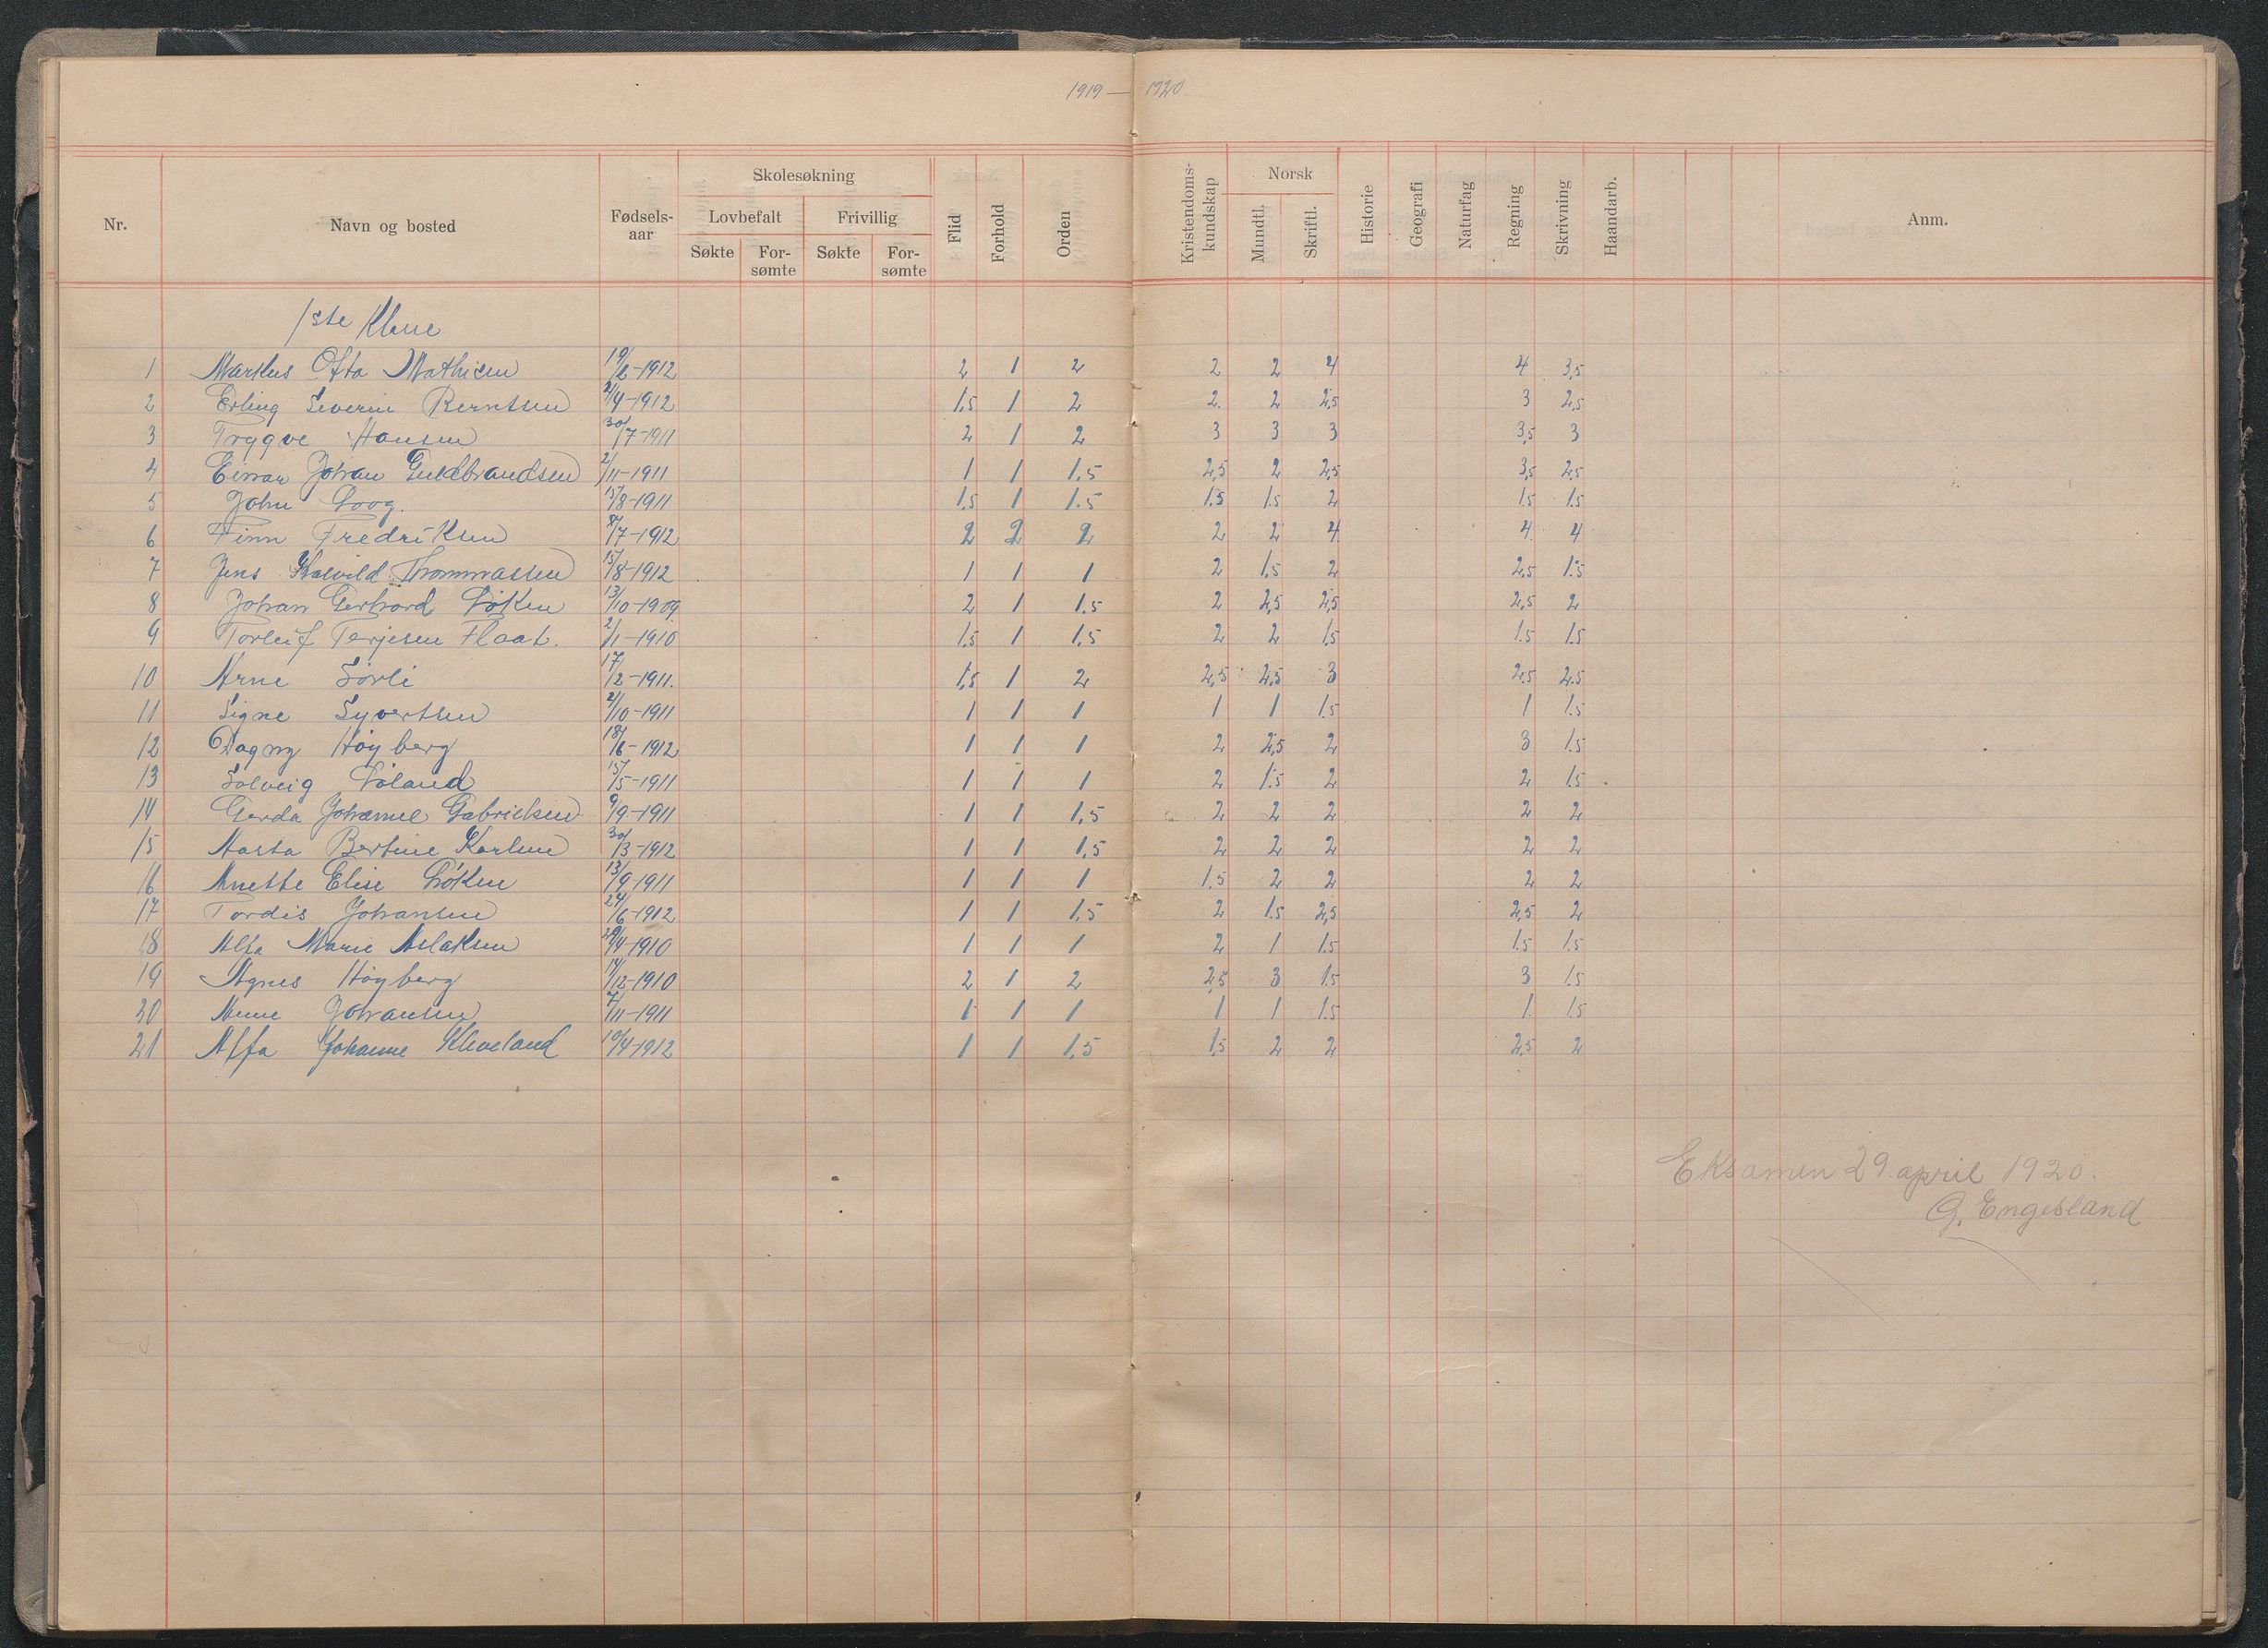 1919 — 1920
Nr. Navn og bosted Fødsels-aar Skolesøkning Lovbefalt Søkte For-sømte Frivillig Søkte For-sømte Flid Forhold Orden Kristendoms-kundskap Norsk Mundtl. Skriftl. Historie Geografi Naturfag Regning Skrivning Haandarb. Anm.
1ste Klasse
1 Markus Ofta Mathisen 19/6-1912 2 1 2 2 2 4 4 3,5
2 Erling Severin Berntsen 2/4-1912 1,5 1 2 2 2 2,5 3 2,5
3 Trygve Hansen 30/7-1911 2 1 2 3 3 3 3,5 3
4 Einar Johan Guldbrandsen 2/11-1911 1 1 1,5 2,5 2 2,5 3,5 2,5
5 John 15/8-1911 1,5 1 1.5 1.5 1.5 2 1.5 1.5
6 Finn Fredriksen 8/7-1912 2 2 2 2 2 4 4 4
7 Jens Thommassen 15/8-1912 1 1 1 2 1.5 2 2,5 1.5
8 Johan Gerhard Løken 13/10-1909 2 1 1.5 2 2,5 2,5 2,5 2
9 Torleif Terjesen Flaat. 2/1-1910 1,5 1 1,5 2 2 1.5 1.5 1.5
10 Arne Sørli 17/2-1911. 1,5 1 2 2,5 2,5 3 2.5 2.5
11 Signe Syvertsen 2/10-1911 1 1 1 1 1 1.5 1 1.5
12 Dagny Høyberg 18/6-1912 1 1 1 2 2,5 2 3 1.5
13 Solveig Løland 15/5-1911 1 1 1 2 1.5 2 2 1.5
14 Gerda Johanne Gabrielsen 9/9-1911 1 1 1,5 2 2 2 2 2
15 Aasta Bertine Karlsen 30/3-1912 1 1 1,5 2 2 2 2 2
16 Anette Elise Løken 13/9-1911 1 1 1 1.5 2 2 2 2
17 Tordis Johansen 24/6-1912 1 1 1,5 2 1.5 2,5 2,5 2
18 Alfa Marie Aslaksen 29/4-1910 1 1 1 2 1 1.5 1.5 1.5
19 Agnes Høyberg 14/12-1910 2 1 2 2,5 3 1.5 3 1.5
20 Anne Johansen 7/11-1911 1 1 1 1 1 1.5 1 1.5
21 Alfa Johanne Kleveland 10/4-1912 1 1 1,5 1,5 2 2 2,5 2
Eksamen 29 april 1920.
G. Engesland